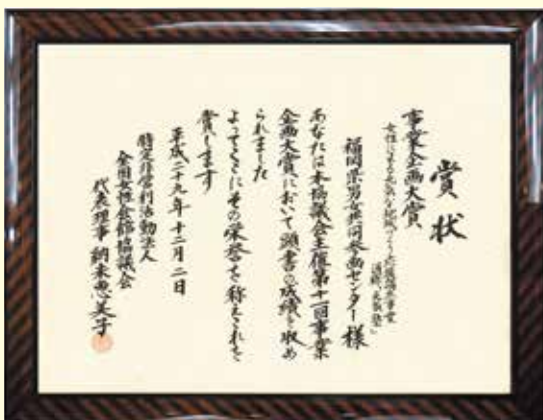 賞状
事業企画大賞
福岡県男女共同参画センター様
あなたは本協議会主催第十一回事業
企画大賞において顕著の成績を収め
られました
よってここにその栄誉を称えこれを
賞します
平成二十九年十二月二日
特定非営利活動法人
全国女性会館協議会
代表理事 納米恵美子